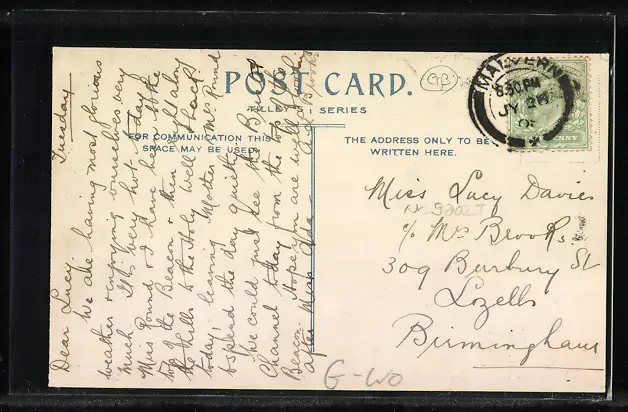 POST CARD.
TILLEY SERIES
FOR COMMUNICATION THIS
SPACE MAY BE USED
THE ADDRESS ONLY TO BE
WRITTEN HERE.
GB
MALVERN
8.30 PM
JY 28
Tuesday
Dear Lucy
We are having most glorious
weather & enjoying ourselves very
much. It is very hot today
Miss Pound & I have been to the
top of the Beacon & then right along
the Hills to the Holy Well & back
today leaving Mother & Mrs Pound
to spend the day quietly.
We could just see the Bristol
Channel today from the top of the
Beacon. Hope you are well & looking
after Miss
Miss Lucy Davies
c/o Mrs Brooks,
309 Burbury St
Lozells
Birmingham
G-WO